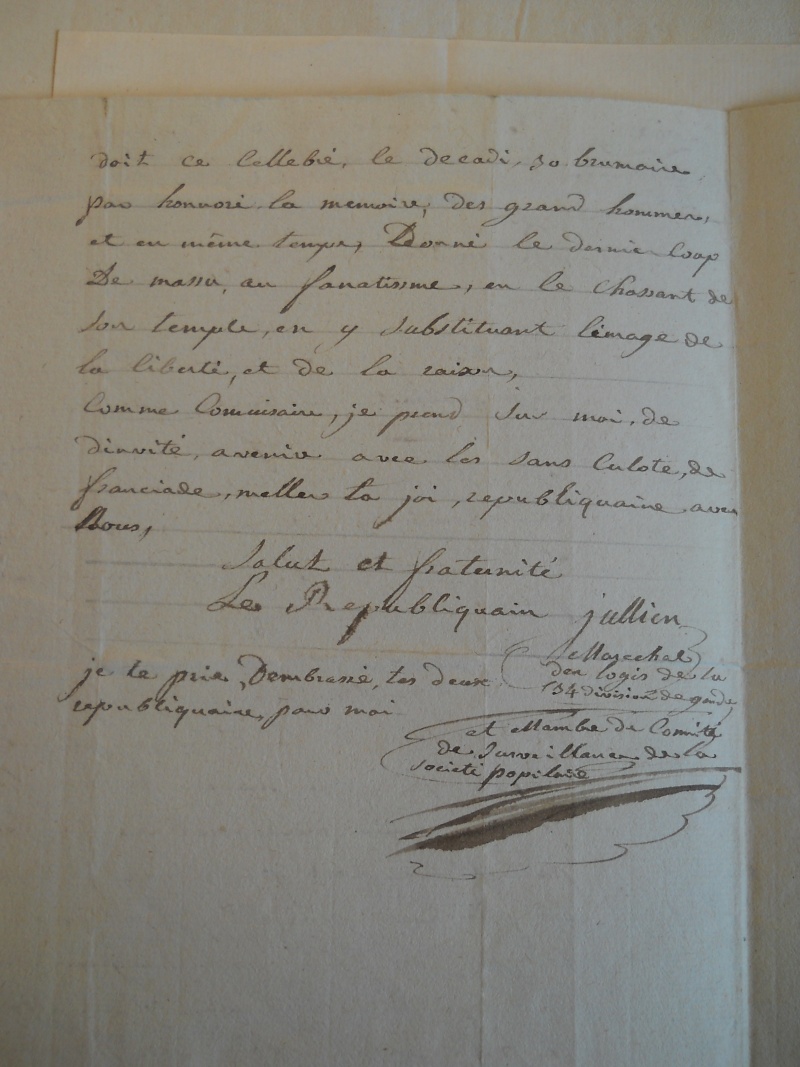 doit ce Cellebré, le decadi, 30 brumaire
pour honnoré la memoire, des grand hommes,
et en même temps, Donné le dernie Coup
De massu, au fanatisme, en le Chassant de
son temple, en y substituant l'émage de
la liberté, et de la raison,
Comme Commisaire, je prend sur moi, de
d'invité, avenir avec les sans Culote, de
franciade, meller ta joi, republiquaine avec
Nous,
Salut et fraternité
Le Republiquain jullien
Marechal
des logis de la
34 division de gend
je te prie, D'embrassé, tes deux
republiquaine, pour moi
et Mambre du Comité
de Surveillance de la
Societé popilaire